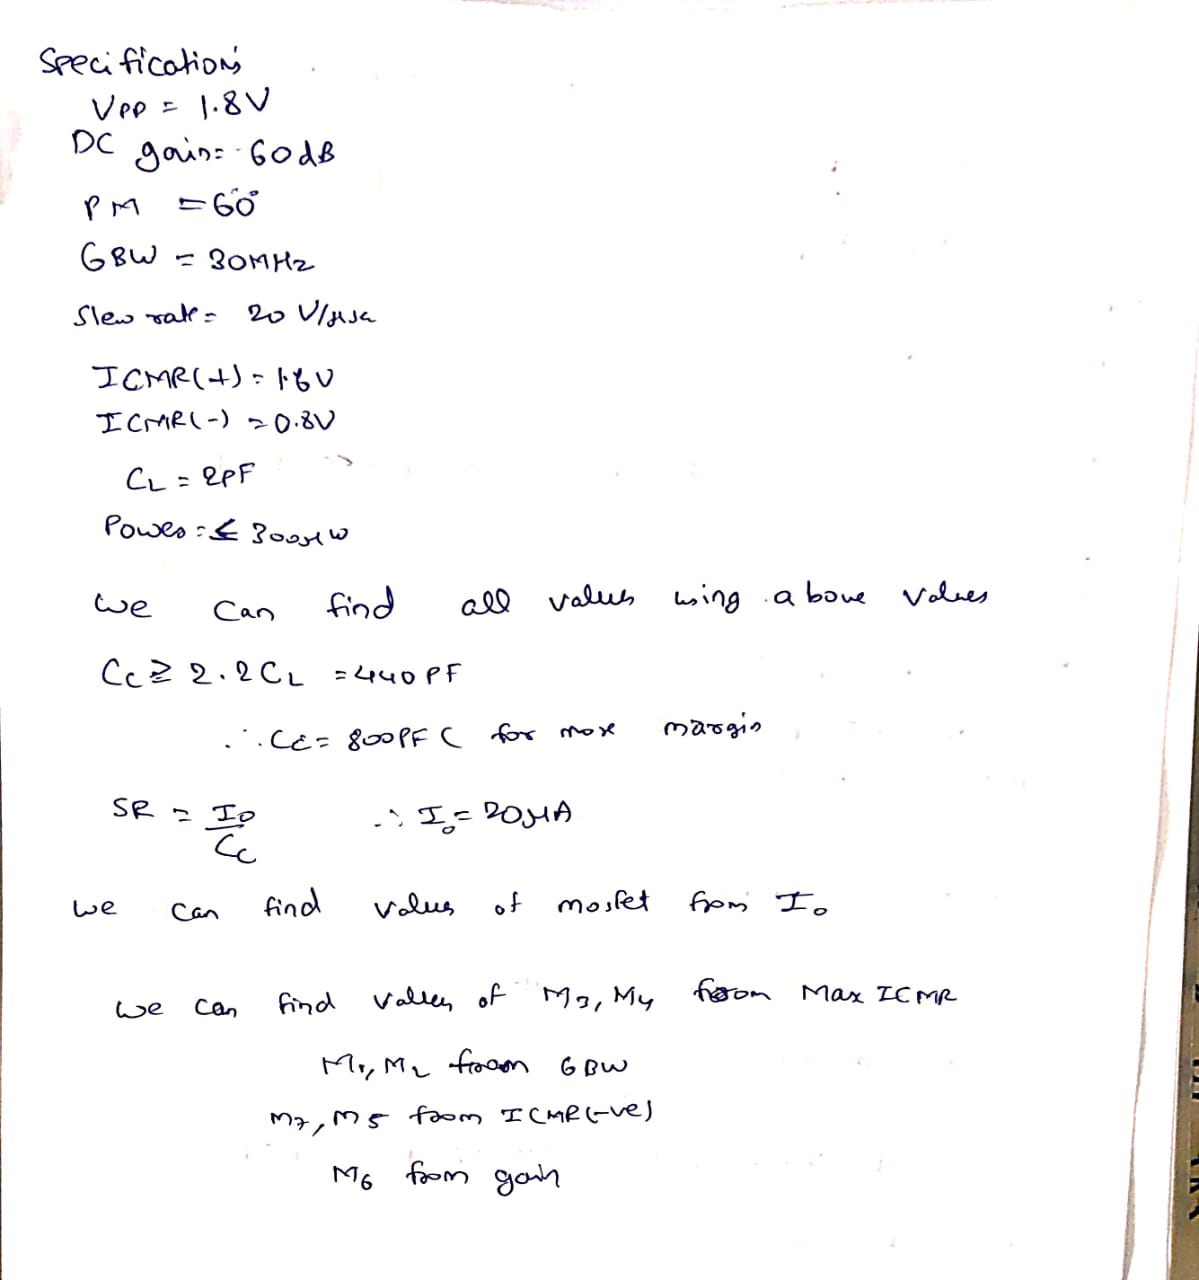 Specifications
VDD = 1.8V
DC gain = 60dB
PM = 60°
GBW = 30MHz
Slew rate = 20 V/μsec
ICMR(+) = 1.6V
ICMR(-) = 0.8V
CL = 2PF
Power = ≤ 300μW
We can find all values using above values
Cc ≥ 2.2CL = 440PF
∴ Cc = 800PF ( for more margin
SR = Io/Cc ∴ Io = 20μA
We can find values of mosfet from Io
We can find values of M3, M4 from Max ICMR
M1, M2 from GBW
M7, M5 from ICMR(-ve)
M6 from gain